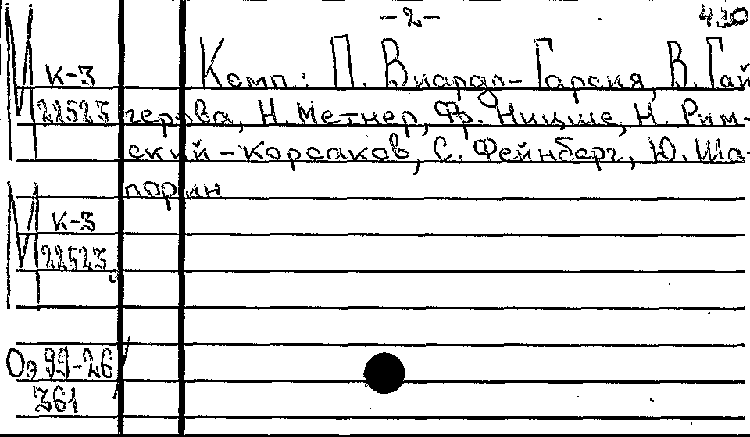 -2-
430
Комп.: П. Виардо-Гарсия, В. Гай
герова, Н. Метнер, Фр. Ницше, Н. Рим-
ский-Корсаков, С. Фейнберг, Ю. Ша-
порин
М К-3
22523
М К-3
22523
Оэ 99-26
361